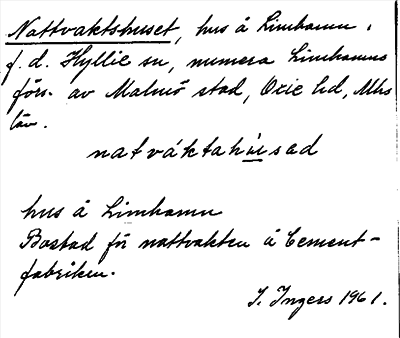 Nattvaktshuset, hus å Limhamn i
f. d. Hyllie sn, numera Limhamns
förs. av Malmö stad, Oxie hd, Mhs
län.
natváktahúisad
hus å Limhamn
Bostad för nattvakten å Cement-
fabriken.
I. Ingers 1961.